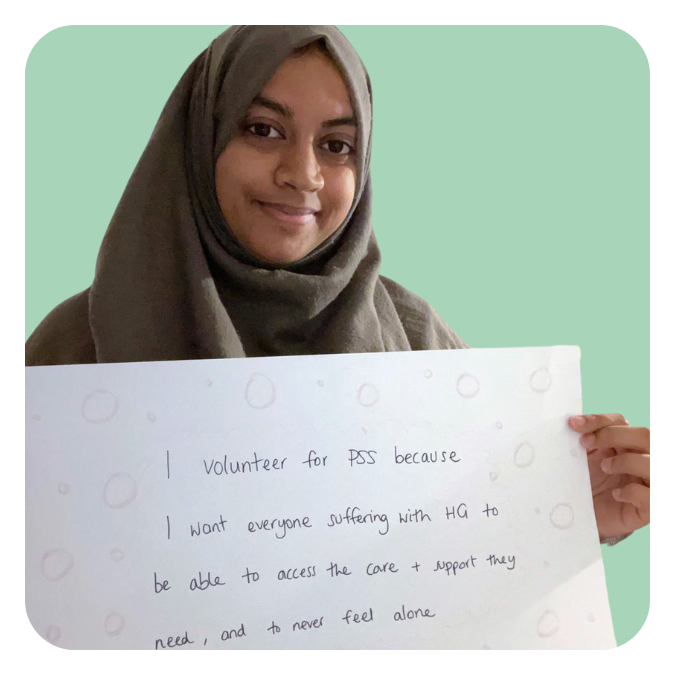 I volunteer for PSS because
I want everyone suffering with HG to
be able to access the care + support they
need, and to never feel alone